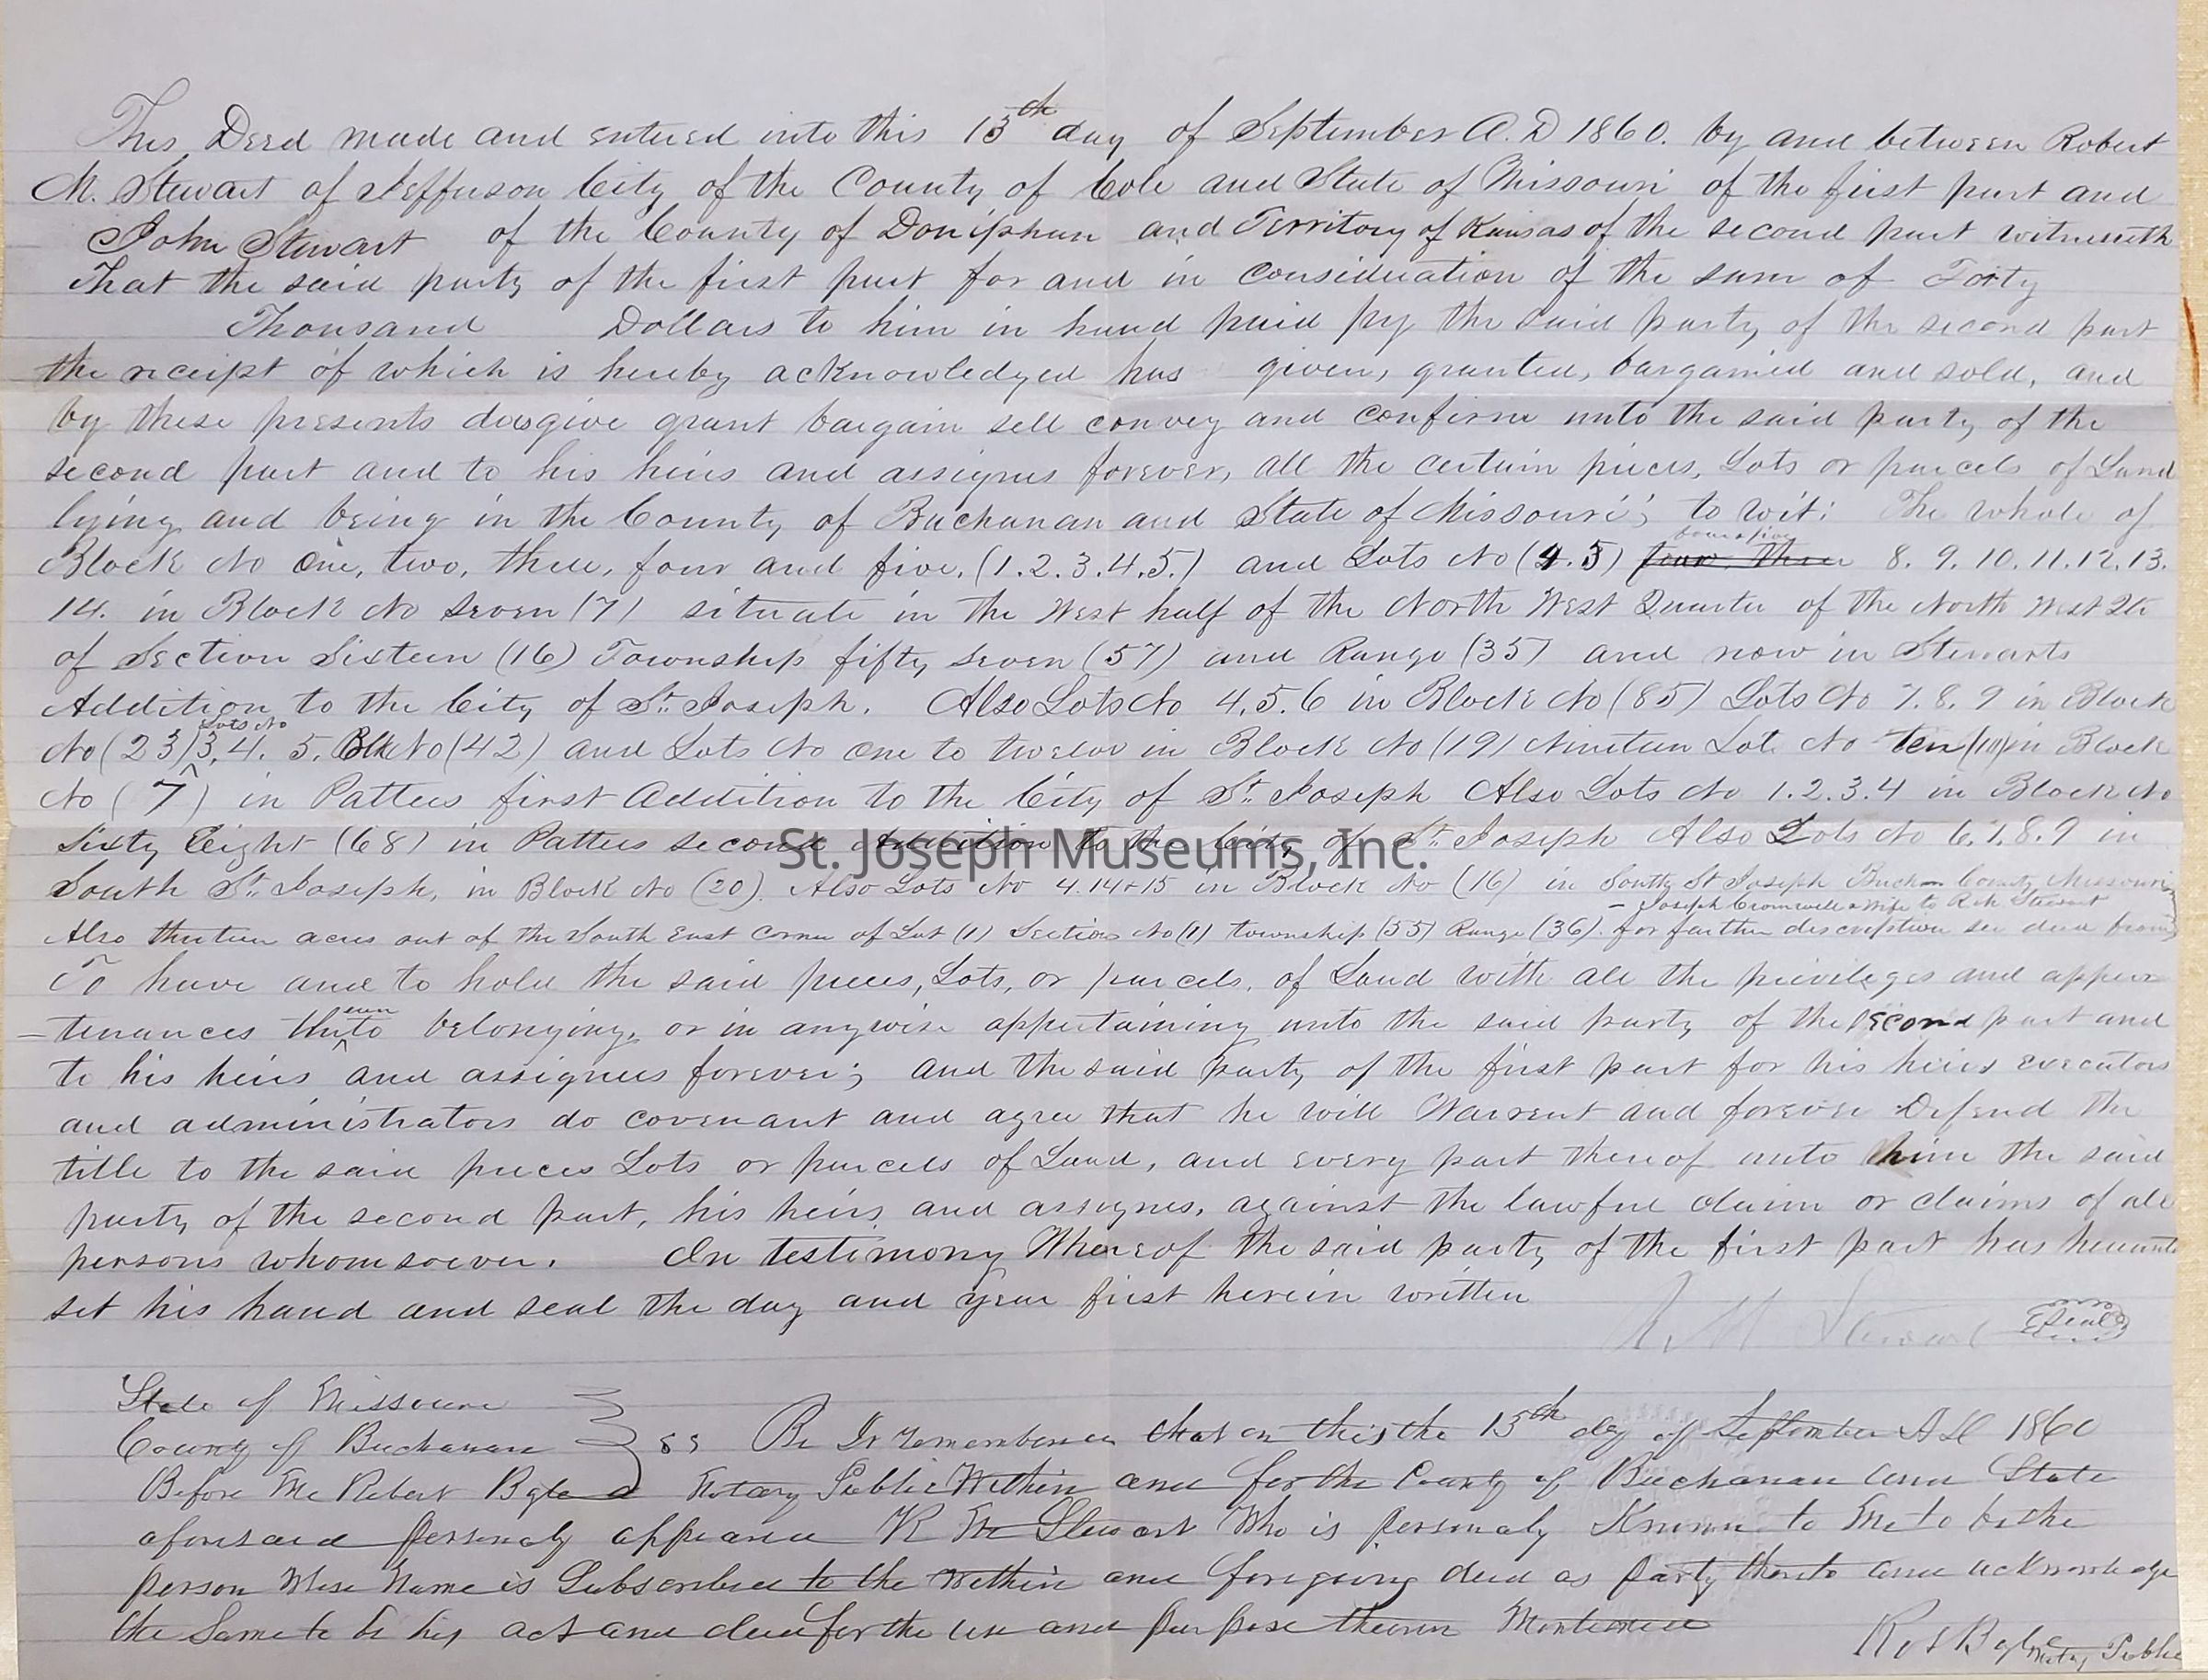 This Deed made and entered into this 13th day of September A.D 1860. by and between Robert
M. Stewart of Jefferson City of the County of Cole and State of Missouri of the first part and
John Stewart of the County of Doniphan and Territory of Kansas of the second part witnesseth
That the said party of the first part for and in consideration of the sum of Forty
Thousand Dollars to him in hand paid py the said party of the second part
the receipt of which is hereby acknowledged has given, granted, bargained and sold, and
by these presents does give grant bargain sell convey and confirm unto the said party of the
second part and to his heirs and assigns forever, all the certain pieces, Lots or parcels of Land
lying and being in the County of Buchanan and State of Missouri; to wit: The whole of
four & five
Block No one, two, three, four and five, (1.2.3.4.5.) and Lots No (4.5) four three 8. 9. 10. 11. 12. 13.
14. in Block No seven (7) situate in the West half of the North West Quarter of the North West Qtr
of Section Sixteen (16) Township fifty seven (57) and Range (35) and now in Stewarts
Addition to the City of St. Joseph. Also Lots No 4.5.6 in Block No (85) Lots No 7.8.9 in Block
Lots No
No (23) 3. 4. 5. Blk No (42) and Lots No one to twelve in Block No (19) Nineteen Lot No Ten (10) in Block
No (7) in Pattees first Addition to the City of St. Joseph Also Lots No 1.2.3.4 in Block No
Sixty Eight (68) in Pattees second Addition to the City of St. Joseph Also Lots No 6.7.8.9 in
South St. Joseph, in Block No (20). Also Lots No 4.14+15 in Block No (16) in South St Joseph Buchan County Missouri
- Joseph Cromwell & Wife to R M Stewart
Also thirteen acres out of the South East corner of Lot (1) Section No (1) township (55) Range (36). for farther discription see deed from
To have and to hold the said pieces, Lots, or parcels, of Land with all the privileges and appur
-tenances thereunto belonging, or in anywise appertaining unto the said party of the second part and
to his heirs and assignees forever; and the said party of the first part for his heirs executors
and administrators do covenant and agree that he will Warrent and forever Defend the
title to the said pieces Lots or parcels of Land, and every part thereof unto him the said
party of the second part, his heirs and assignes, against the lawful claim or claims of all
persons whomsoever. In testimony Whereof the said party of the first part has hereunto
set his hand and seal the day and year first herein written
R M Stewart (Seal)
State of Missouri
County of Buchanan } ss Be It remembered that on this the 15th day of September AD 1860
Before Me Robert Byle a Notary Public Within and for the County of Buchanan and State
aforesaid personaly appeared R M Stewart Who is personaly Known to Me to be the
person Whose Name is Subscribed to the Within and foregoing deed as party thereto and acknowledge
the Same to be his act and deed for the use and purpose therein Mentioned
Robt Byle Notary Public
St. Joseph Museums, Inc.